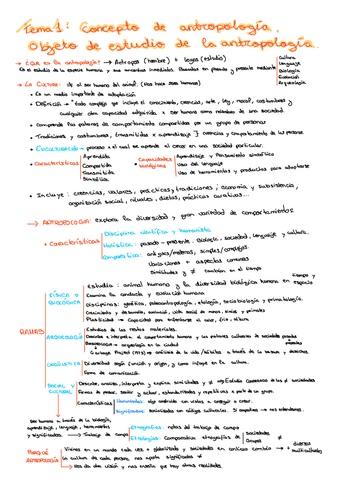 Tema 1: Concepto de antropología.
Objeto de estudio de la antropología.
¿Qué es la antropología? → Antropos (hombre) + logos (estudio)
Es el estudio de la especie humana y sus ancestros inmediatos. Basados en pasado y presente mediante
Cultura
Lenguaje
Biología
Evolución
Arqueología
La Cultura: de al ser humano del animal. (Nos hace seres humanos)
• Es un medio importante de adaptación
• Definición → Todo complejo que incluye el conocimiento, creencias, arte, ley, moral, costumbres y
cualquier otra capacidad adquirida x ser humano como miembro de una sociedad
• Comprende los patrones de comportamiento compartidos por un grupo de personas
• Tradiciones y costumbres, transmitidas x aprendizaje } creencias y comportamiento de las personas
• Enculturación → proceso x el cual se aprende al crecer en una sociedad particular.
• Características
Aprendida
Compartida
Transmitida
Simbólica
• Capacidades biológicas
Aprendizaje y Pensamiento simbólico
Uso del lenguaje
Uso de herramientas y productos para adaptarse
• Incluye: creencias, valores, prácticas, tradiciones, economía y subsistencia,
organización social, rituales, dietas, prácticas curativas...
→ ANTROPOLOGÍA: explora la diversidad y gran variedad de comportamientos
• Características
Disciplina científica y humanista
Holística: pasado - presente. Biología - sociedad, lenguaje y cultura.
Comparativa: antiguas/modernas, simples/complejas.
Variaciones + aspectos comunes
Similitudes y ≠ también en el tiempo
RAMAS
FÍSICA O BIOLÓGICA
Estudia: animal humano y la diversidad biológica humana en tiempo y espacio
Examina la conducta y evolución humana
Disciplinas: genética, paleoantropología, etología, sociobiología y primatología.
Crecimiento y desarrollo, evolución, vida social de monos, simios y primates
Plasticidad → Capacidad para enfrentarse al calor, frío, altura
ARQUEOLOGÍA
Estudios de los restos materiales.
Describe e interpreta el comportamiento humano y los patrones culturales de sociedades pasadas
presentes
→ arqueología en la ciudad
Garbage Project (1973) → análisis de la vida/hábitos a través de la basura y desechos.
LINGÜÍSTICA
Diversidad según función y origen, y como influye en la cultura.
Forma de comunicación.
SOCIAL Y CULTURAL
Describe, analiza, interpreta y explica similitudes y ≠
Formas de pensar, sentir y actuar, estandarizadas y repetitivas x parte de un grupo.
Características
Humanidades: algo construido con visitas a averiguar o crear.
Significados: sociedades con códigos culturales. Si importan → nos entendemos.
Ser humano a través de la biología,
aprendizaje, lenguaje, herramientas
y significados. → Trabajo de campo
Etnografías: notas del trabajo de campo
Etnología: Comparación etnografías de Sociedades
Grupos ≠
Vivimos en un mundo cada vez + globalizado y sociedades en continuo cambio → + diversas
multiculturales
La cultura de cada persona, nos aporta significados ≠
→ Nos da otra visión y nos enseña que hay otras realidades